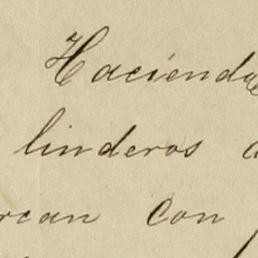 Hacienda
linderos
rcan con